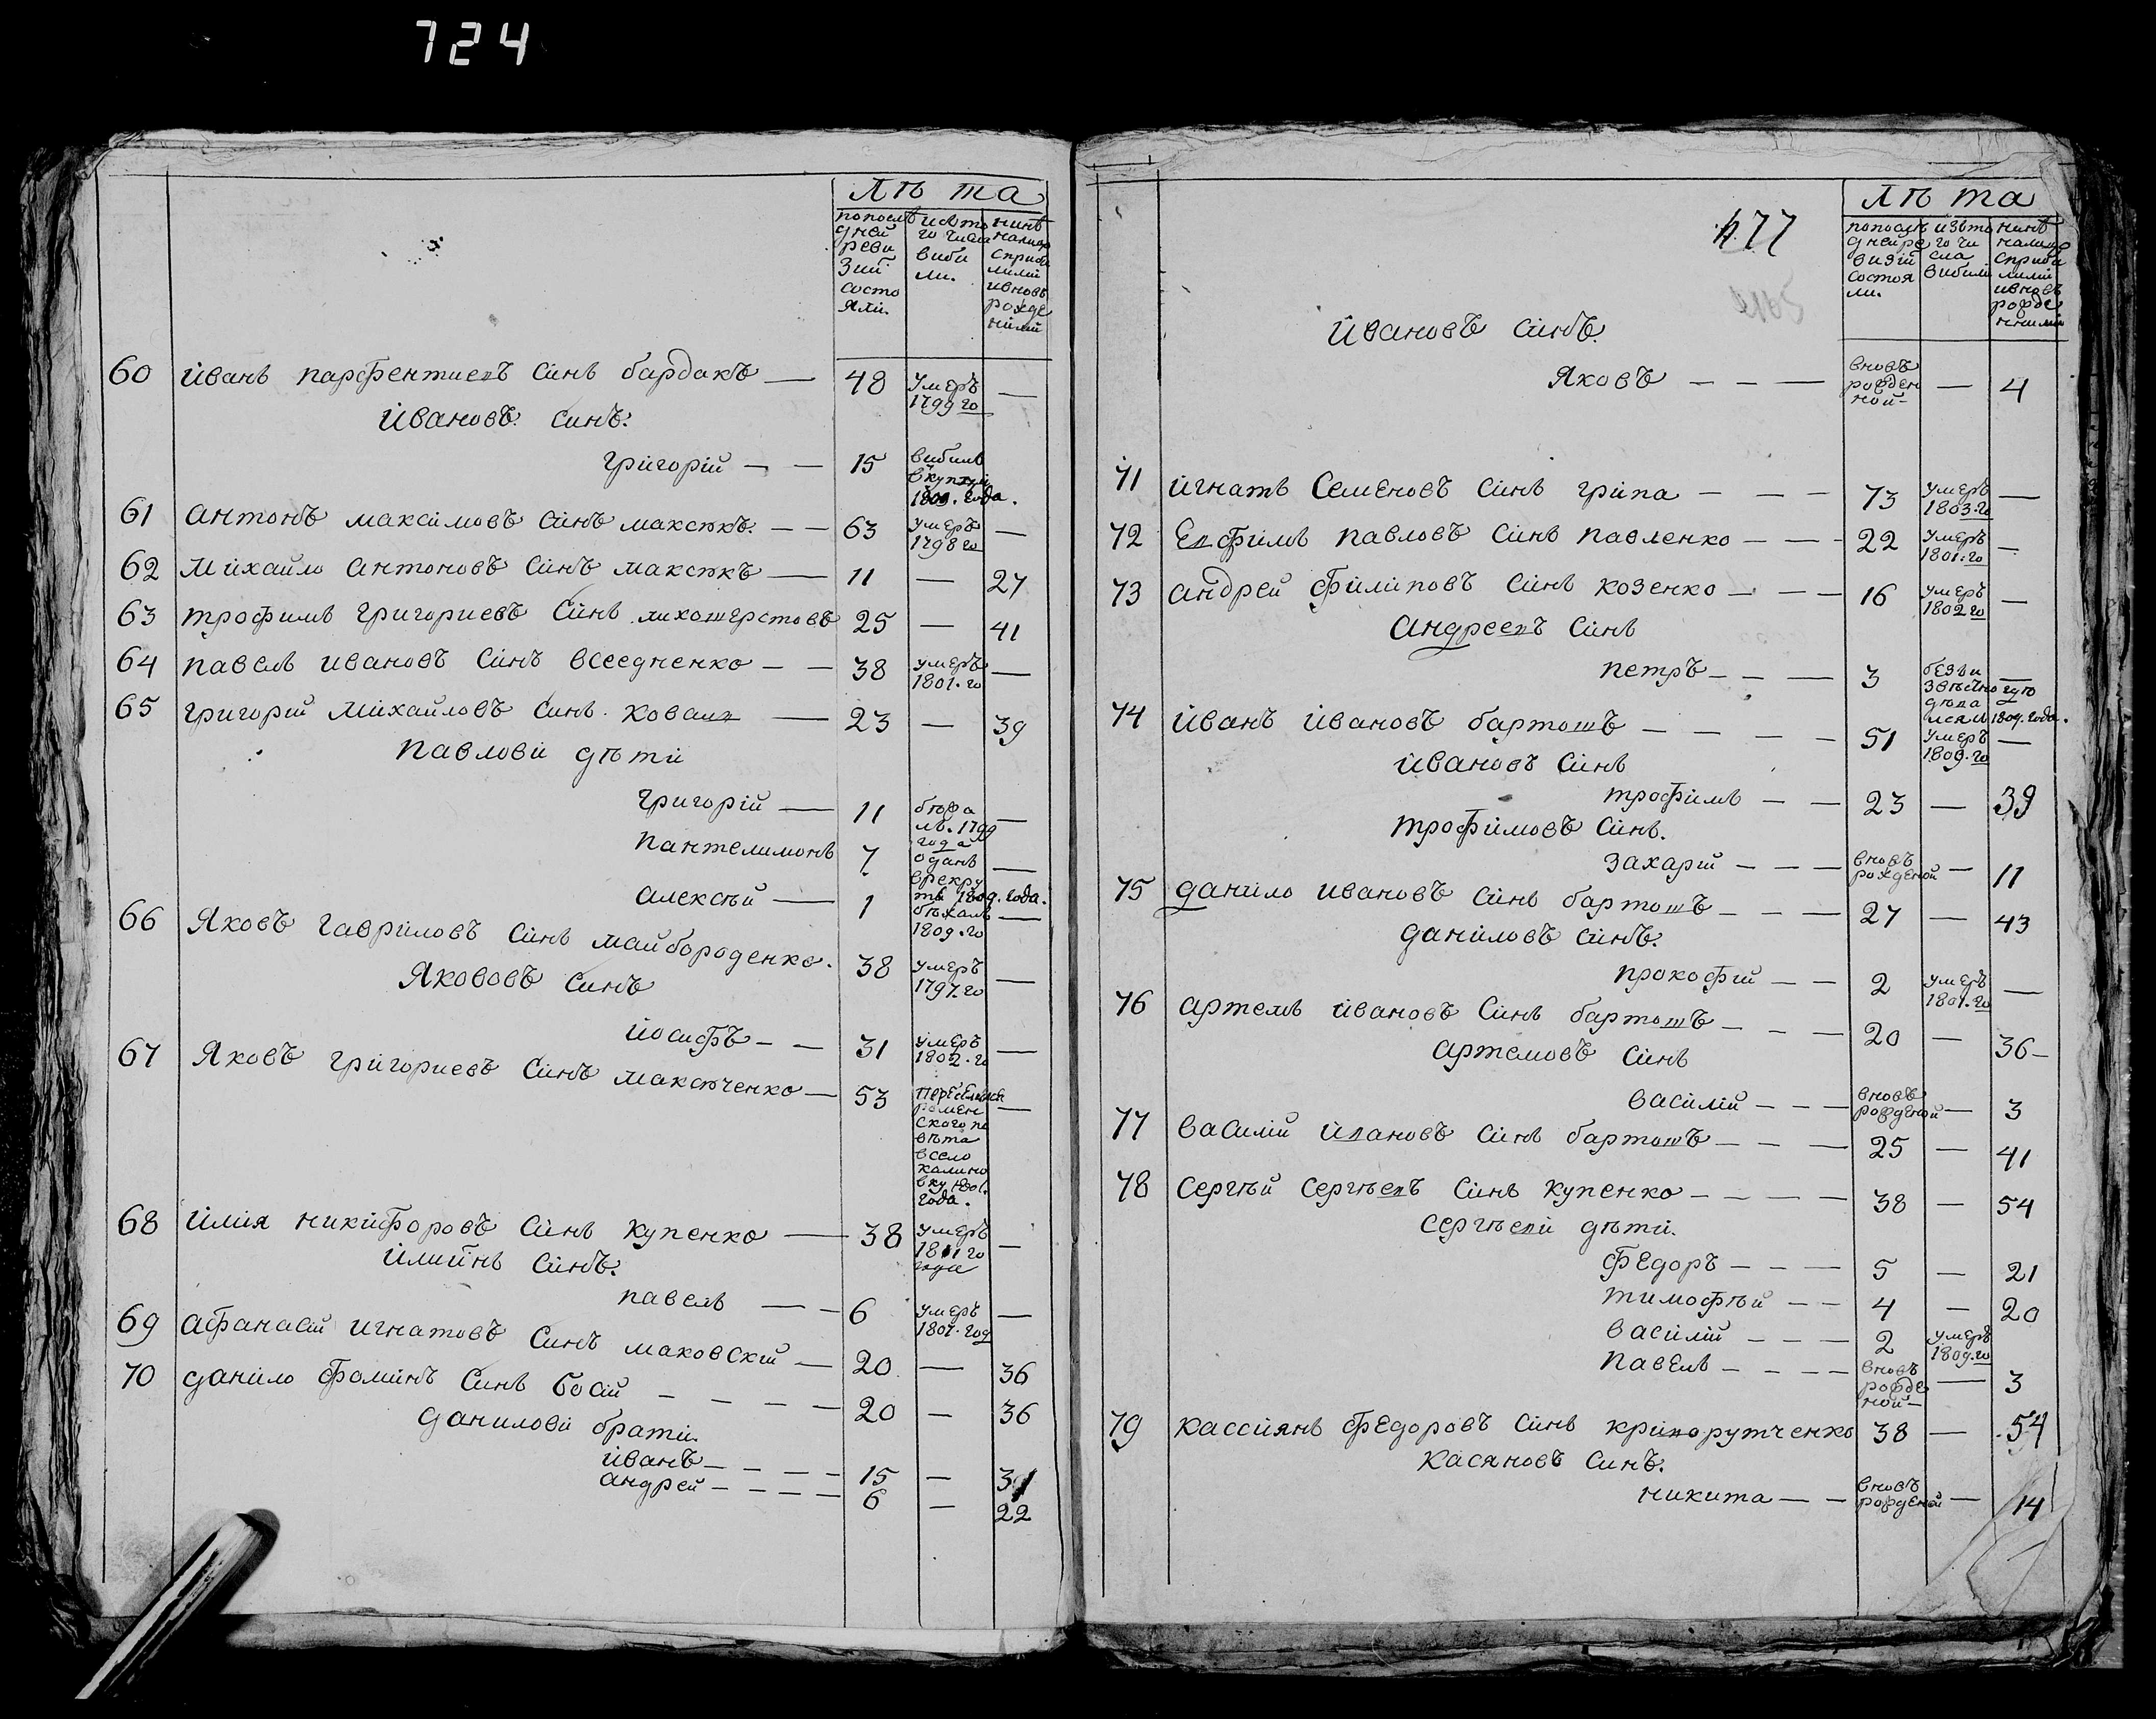 724
Лѣта
попослѣ
дней
реви
зіи
состо
яли.
исъто
го числа
виби
ли.
нинѣ
налице
сприби
лими
ивновь
рожде
ними
60 Иванъ парфентиевъ синъ бардакъ — 48 умеръ 1799 го —
Ивановъ синъ.
григорій — — 15 вибилъ
1809. года.
61 антонъ максимовъ синъ максюкъ. — — 63 умеръ 1798 го —
62 Михайло антоновъ синъ максюкъ — 11 — 27
63 трофимъ григориевъ синъ лихошерстовъ 25 — 41
64 павелъ ивановъ синъ всеедненко — — 38 умеръ 1801. го —
65 григорій Михайловъ синъ ковали — 23 — 39
павлови дѣти
григорій — 11 бѣжа лъ. 1799 года —
пантелимонъ 7 оданъ врекру ти 1809. года. —
алексѣй — 1 бѣжалъ 1809. го —
66 Яковъ гавриловъ синъ майбороденко. 38 умеръ 1797. го —
Якововъ синъ
йосифъ — — 31 умеръ 1802. го —
67 Яковъ григориевъ синъ максюченко — 53 переселился —
ромен
ского по
вѣта
всело
калино
вку 1801.
года.
68 илия никифоровъ синъ купенко — 38 умеръ 1811 го года —
илиинъ синъ.
павелъ — — 6 умеръ 1802. год —
69 афанасій игнатовъ синъ маковскій — 20 — 36
70 данило фоминъ синъ босій — — — 20 — 36
данилови брати.
иванъ — — — — 15 — 31
андрей — — — — 6 — 22
477
Лѣта
попослѣ
дней ре
визіи
состоя
ли.
изъто
го чи
сла
вибили
нинѣ
налице
сприби
лими
ивновь
рожде
ними
Ивановъ синъ.
Яковъ — — — вновъ рожден ной — — 4
71 игнатъ семеновъ синъ грипа — — — 73 умеръ 1803. го —
72 Евфимъ павловъ синъ павленко — — — 22 умеръ 1801. го —
73 андрей филиповъ синъ козенко — — — 16 умеръ 1802 го —
Андреевъ синъ
петръ — — — 3 безъи звѣстно —
1809. года.
74 иванъ ивановъ бартошъ — — — — 51 умеръ 1809. го —
ивановъ синъ
трофимъ — — 23 — 39
трофимовъ синъ.
захарій — — — вновъ рожденой — 11
75 данило ивановъ синъ бартошъ — — — 27 — 43
даниловъ синъ.
прокофій — — 2 умеръ 1801. го —
76 артемъ ивановъ синъ бартошъ — — — 20 — 36 —
артемовъ синъ
василій — — — вновъ рожденой — 3
77 василій ивановъ синъ бартошъ — — — 25 — 41
78 сергѣй сергѣевъ синъ купенко — — — — 38 — 54
сергѣеви дѣти.
федоръ — — — 5 — 21
тимофѣй — — 4 — 20
василій — — — 2 умеръ 1809. го
павелъ — — — — вновъ рожде ной — — 3
79 кассиянъ федоровъ синъ криворутченко 38 — 54
касяновъ синъ.
никита — — вновъ рожденой — 14